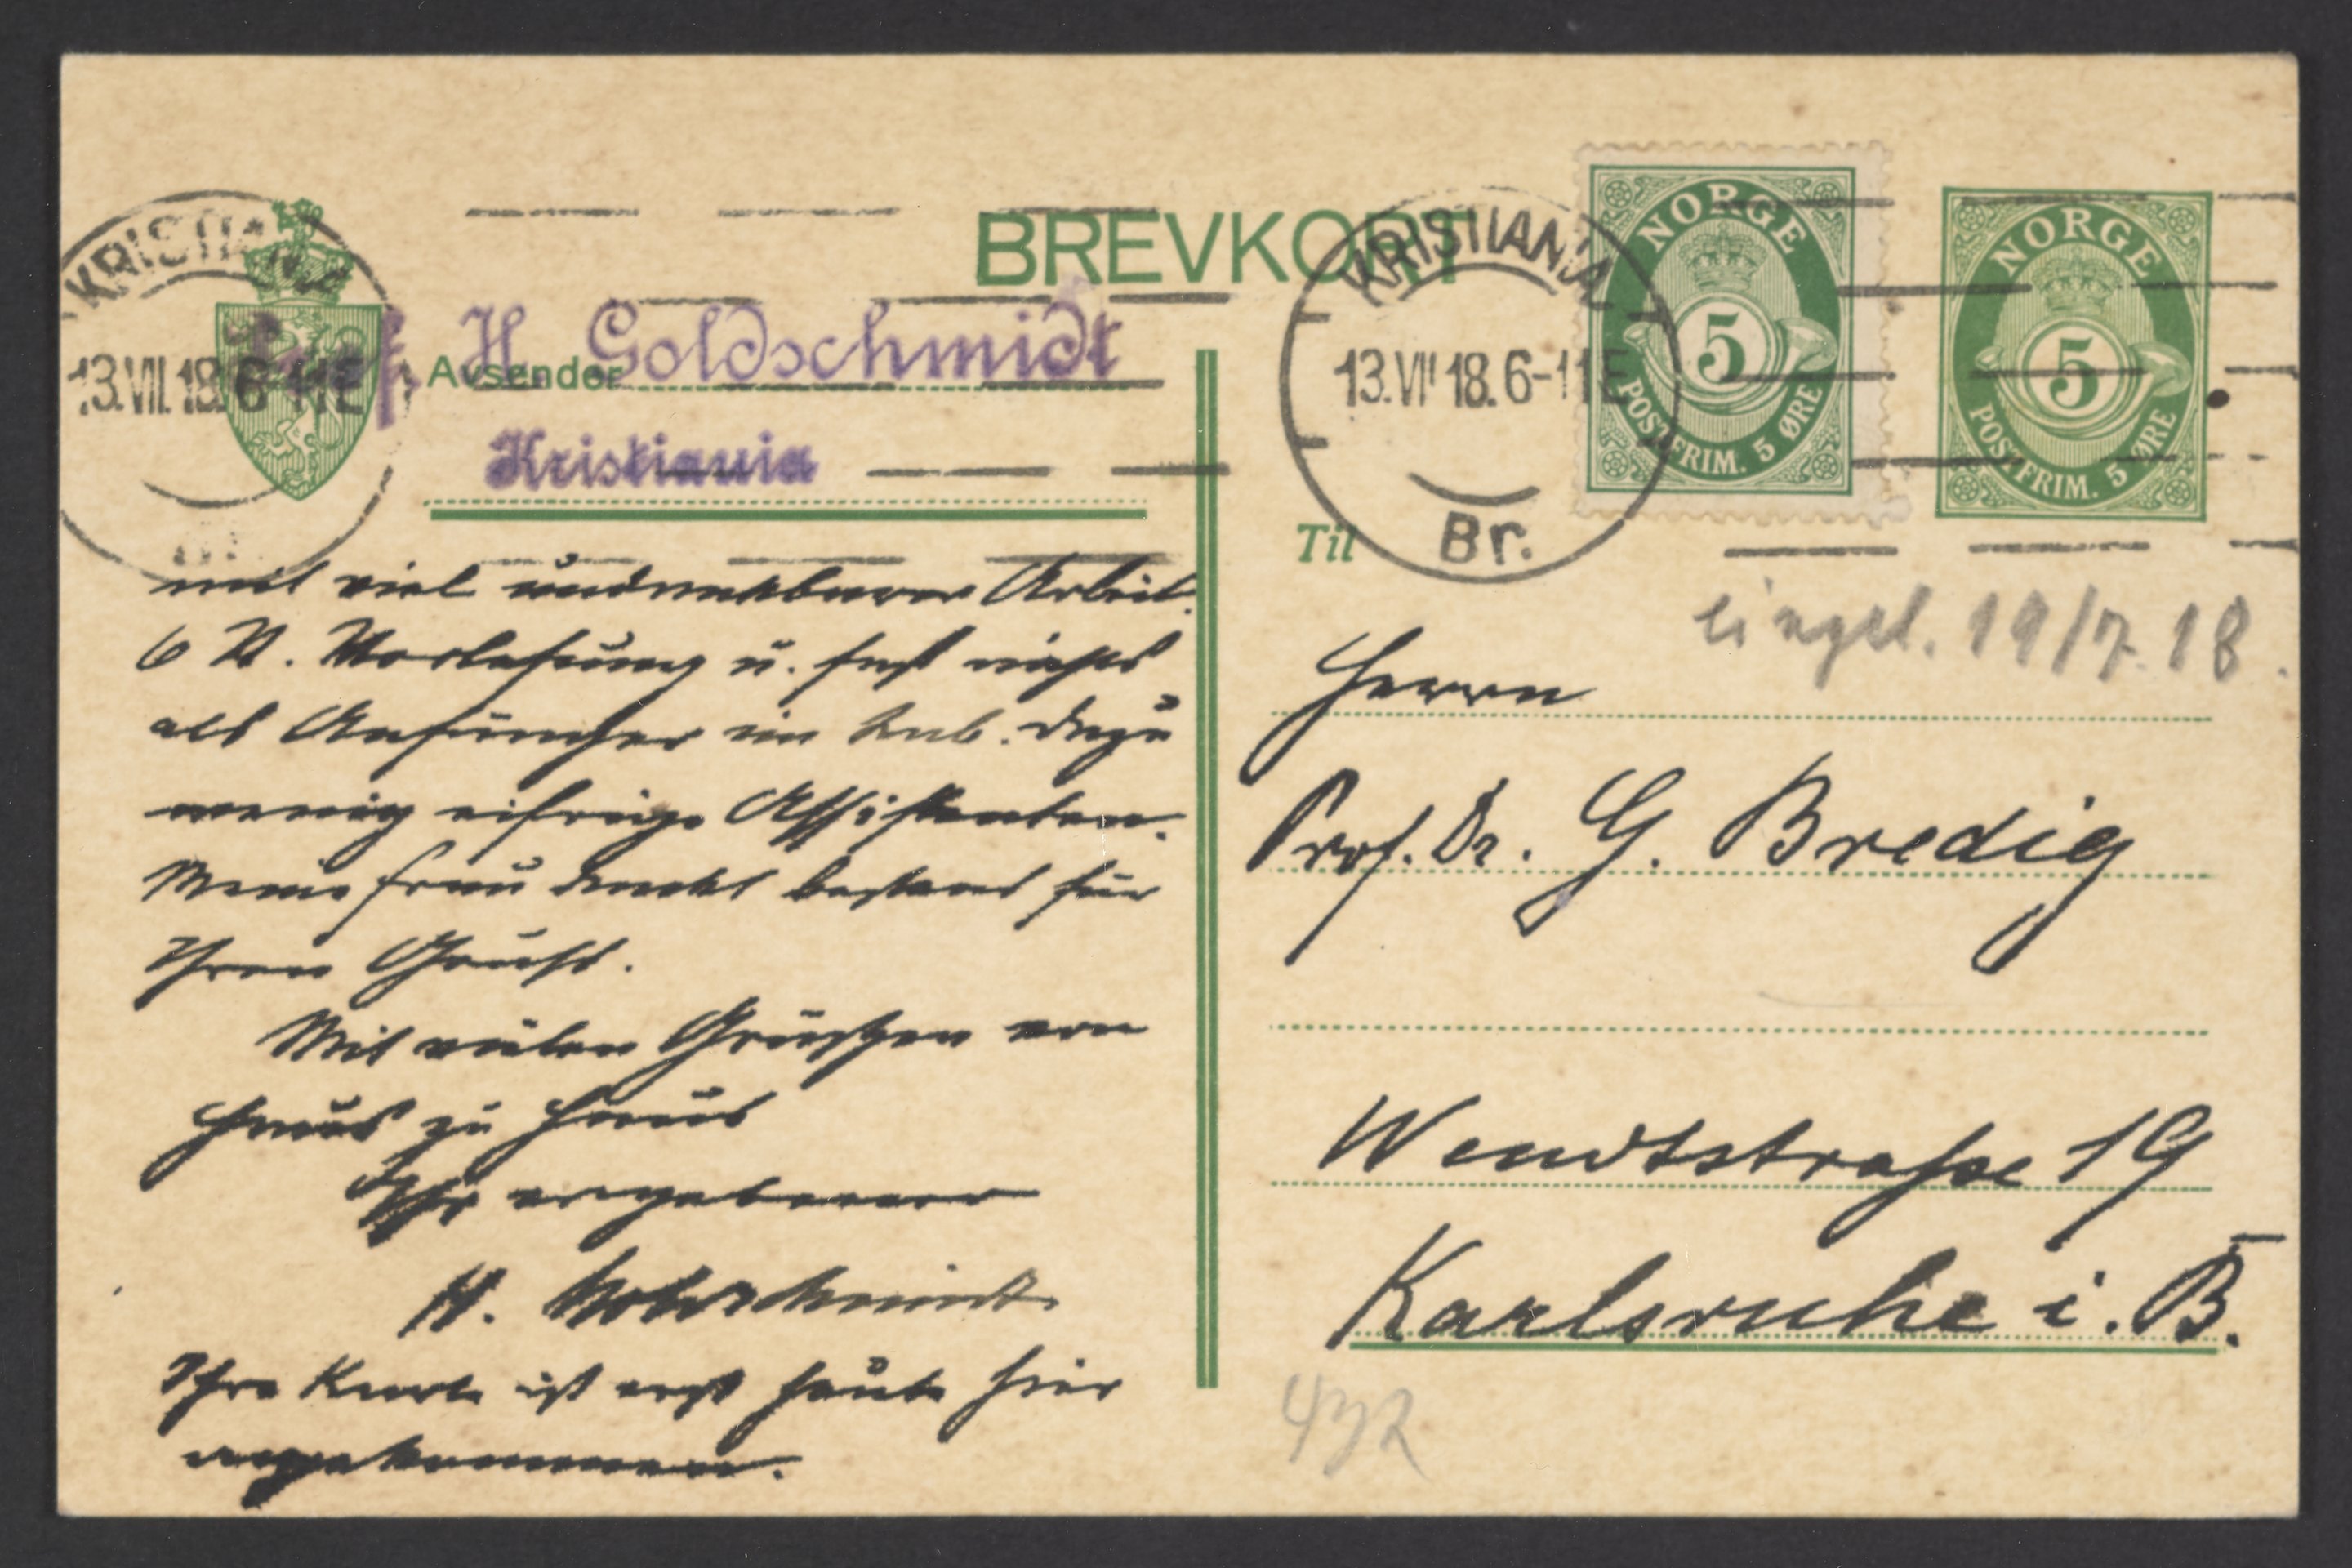 BREVKORT
KRISTIANIA
13.VII.18.6-11E
Prof. H. Goldschmidt
Avsender
Kristiania
KRISTIANIA
13.VII 18.6-11E
Br.
NORGE
5
POSTFRIM. 5 ØRE
NORGE
5
POSTFRIM. 5 ØRE
mit viel undankbarer Arbeit.
6 St. Vorlesung u. fast nichts
als Anfänger im Lab. Dazu
wenig eifrige Assistenten.
Meine Frau dankt bestens für
Ihren Gruß.
Mit vielen Grüßen von
Haus zu Haus
Ihr ergebener
H. Goldschmidt
Ihre Karte ist erst heute hier
angekommen.
Til
eingel. 19/7.18.
Herrn
Prof. Dr. G. Bredig
Wendtstraße 19
Karlsruhe i. B.
432